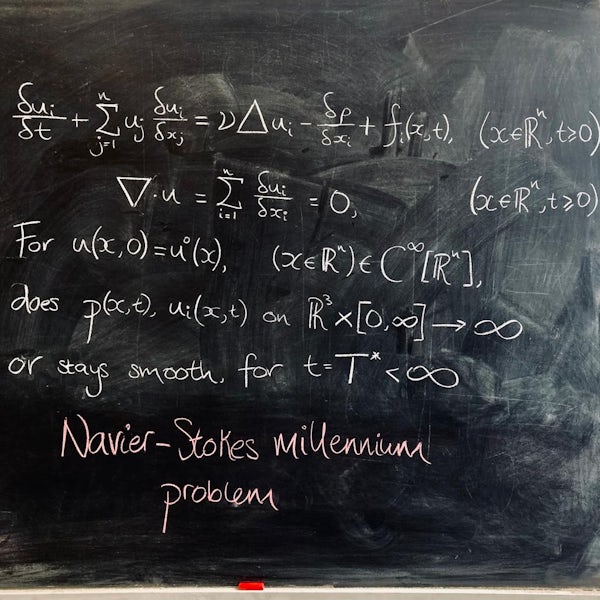 δuᵢ/δt + Σⁿⱼ₌₁ uⱼ δuᵢ/δxⱼ = νΔuᵢ − δp/δxᵢ + fᵢ(x,t), (x∈ℝⁿ, t≥0)
∇·u = Σⁿᵢ₌₁ δuᵢ/δxᵢ = 0, (x∈ℝⁿ, t≥0)
For u(x,0) = u°(x), (x∈ℝⁿ) ∈ C^∞[ℝⁿ],
does p(x,t), uᵢ(x,t) on ℝ³×[0,∞] → ∞
or stays smooth, for t=T*<∞
Navier-Stokes millennium
problem